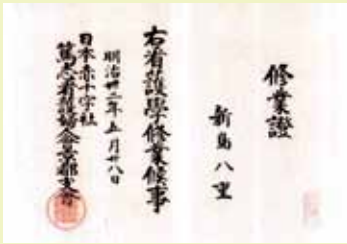 修業證
新島八重
右看護學修業候事
明治卅二年五月廿八日
日本赤十字社
篤志看護婦人會京都支會